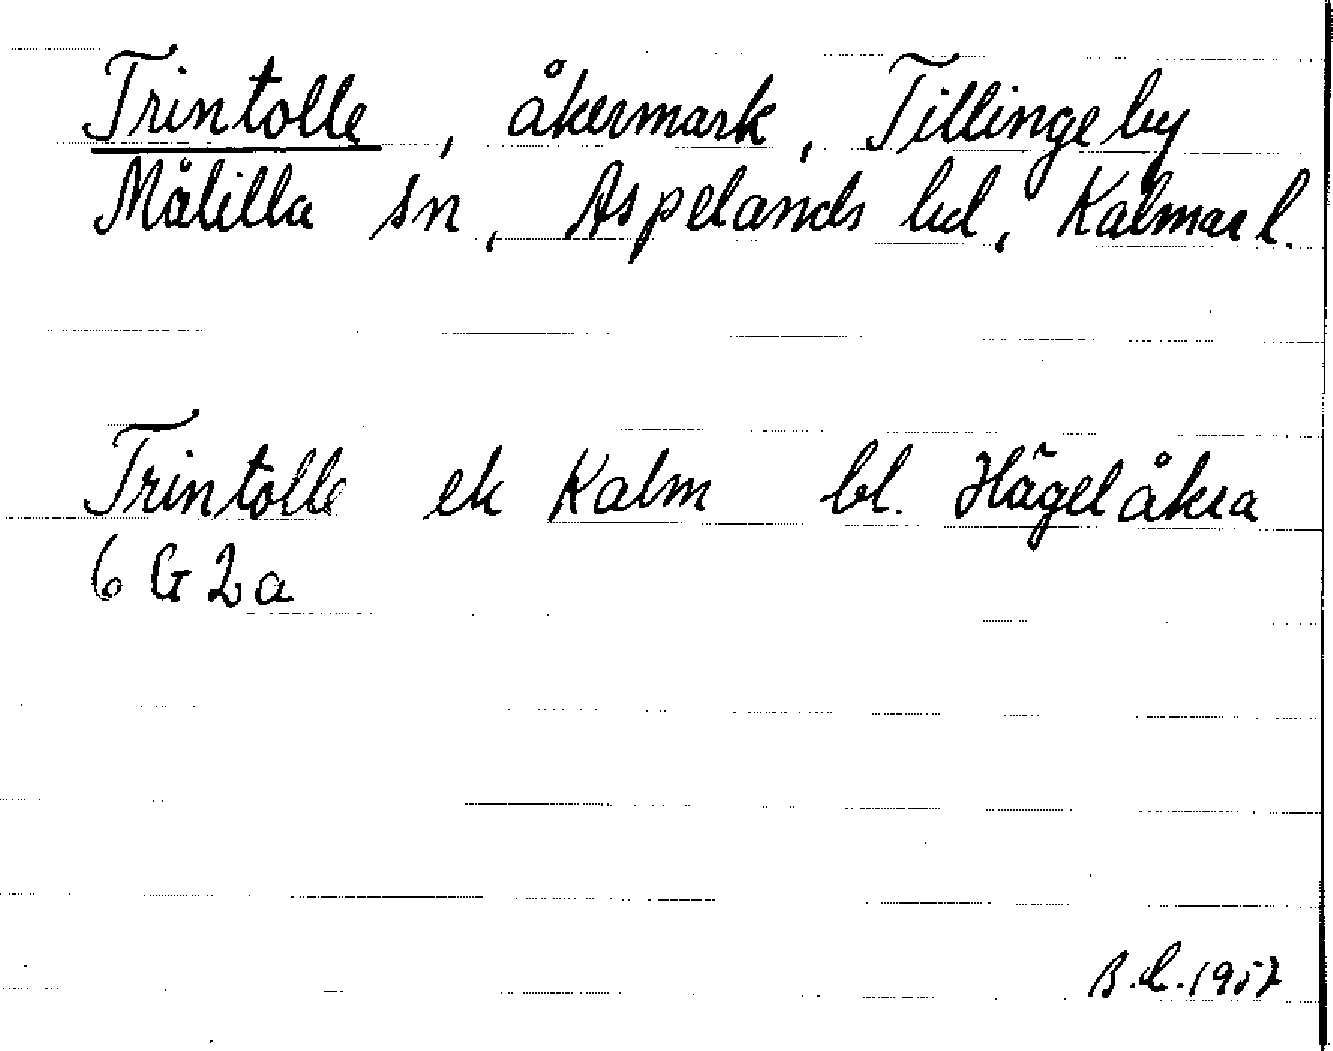 Trintolle, åkermark, Tillinge by
Målilla sn, Aspelands hd, Kalmar l.
Trintolle ek Kalm bl. Hägelåkra
6 G 2 a
B.L. 1957